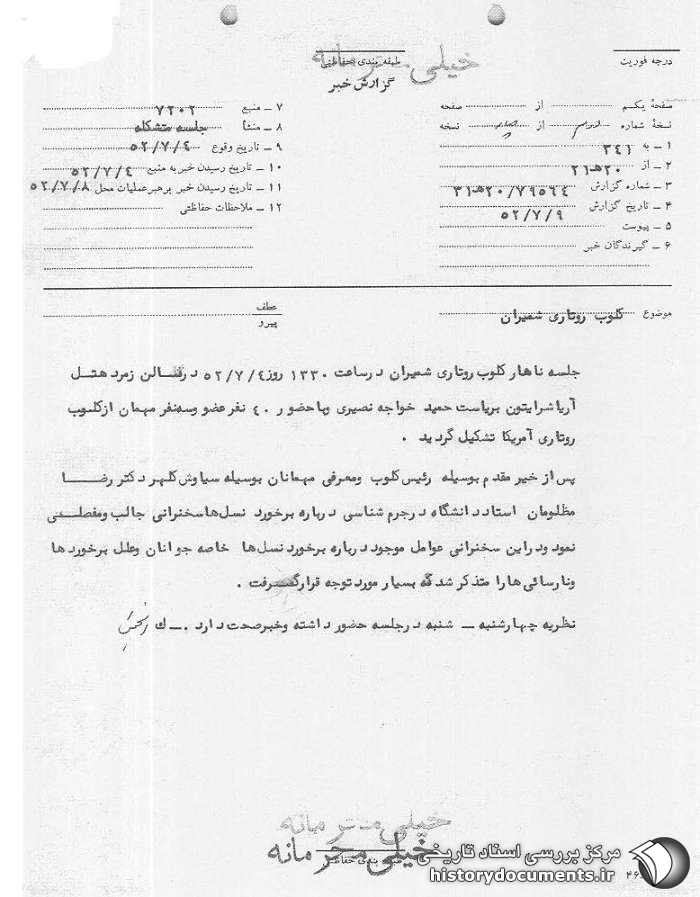 خیلی محرمانه
درجه فوریت
طبقه بندی حفاظتی
گزارش خبر
صفحهٔ یکم از صفحه
نسخهٔ شماره از نسخه
۱ ـ به ۳۴۱
۲ ـ از ۲۰ه‍ ۲۱
۳ ـ شماره گزارش ۲۰/۷۹۵۶۴ه‍ ۳۱
۴ ـ تاریخ گزارش ۵۲/۷/۹
۵ ـ پیوست
۶ ـ گیرندگان خبر
۷ ـ منبع ۷۲۰۲
۸ ـ منشأ جلسه متشکله
۹ ـ تاریخ وقوع ۵۲/۷/۴
۱۰ ـ تاریخ رسیدن خبر به منبع ۵۲/۷/۴
۱۱ ـ تاریخ رسیدن خبر برهبر عملیات محل ۵۲/۷/۸
۱۲ ـ ملاحظات حفاظتی
موضوع کلوب روتاری شمیران
عطف
پیرو
جلسه ناهار کلوب روتاری شمیران در ساعت ۱۳۳۰ روز ۵۲/۷/۴ در سالن زمرد هتل
آریا شرایتون بریاست حمید خواجه نصیری و با حضور ۴۰ نفر عضو و سه نفر مهمان از کلوب
روتاری آمریکا تشکیل گردید .
پس از خیر مقدم بوسیله رئیس کلوب و معرفی مهمانان بوسیله سیاوش کلهر دکتر رضا
مظلومان استاد دانشگاه در جرم شناسی درباره برخورد نسل‌ها سخنرانی جالب و مفصلی
نمود و در این سخنرانی عوامل موجود درباره برخورد نسل‌ها خاصه جوانان و علل برخوردها
و نارسائی‌ها را متذکر شد که بسیار مورد توجه قرار گرفت .
نظریه چهارشنبه ـ شنبه در جلسه حضور داشته و خبر صحت دارد . ـ ك
خیلی محرمانه
خیلی محرمانه
طبقه بندی حفاظتی
مرکز بررسی اسناد تاریخی
historydocuments.ir